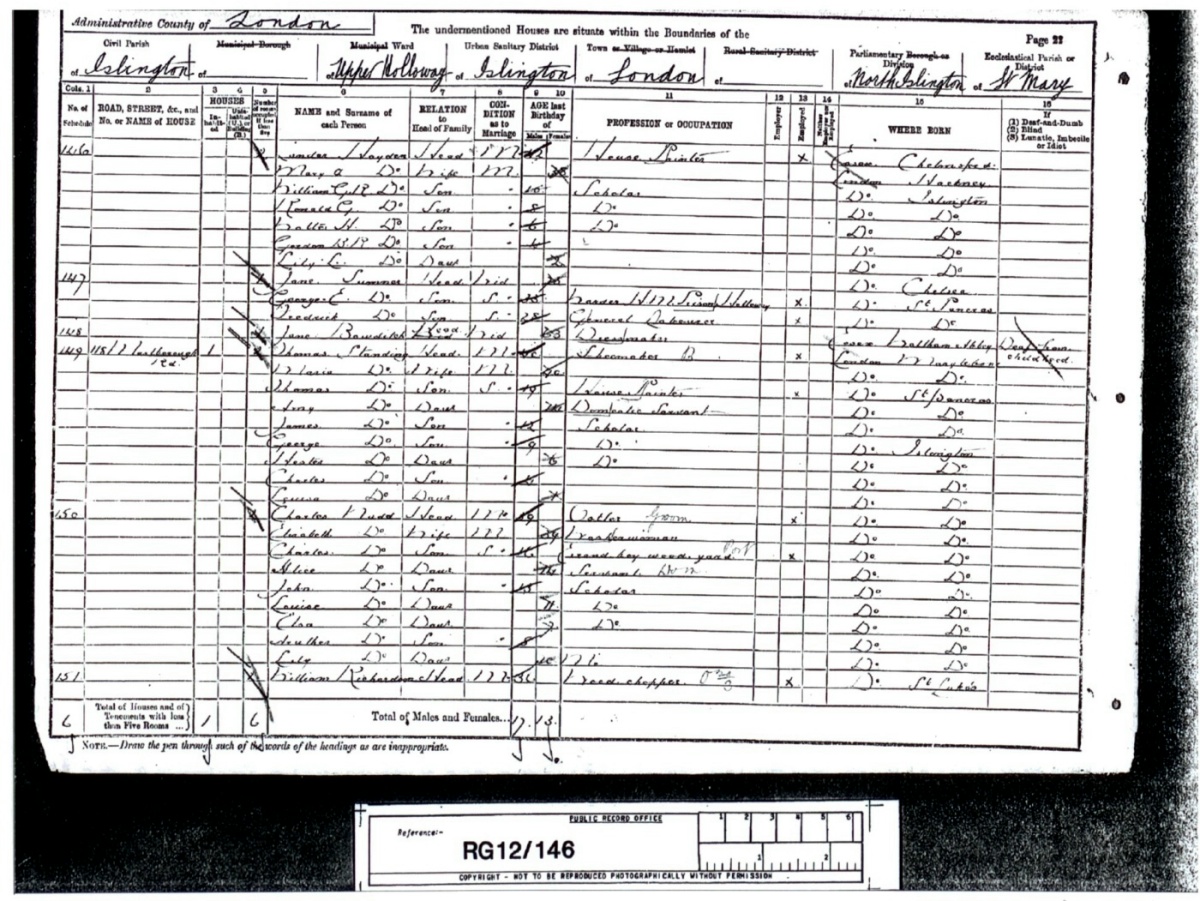 Administrative County of London
The undermentioned Houses are situate within the Boundaries of the
Page 23
Civil Parish
Municipal Borough
Municipal Ward
Urban Sanitary District
Town or Village or Hamlet
Rural Sanitary District
Parliamentary Borough or Division
Ecclesiastical Parish or District
of Islington of Upper Holloway of Islington of London of of North Islington of St Mary
Cols. 1 2 3 4 5 6 7 8 9 10 11 12 13 14 15 16
No. of Schedule
ROAD, STREET, &c., and No. or NAME of HOUSE
HOUSES
NAME and Surname of each Person
RELATION to Head of Family
CONDITION as to Marriage
AGE last Birthday of
Males Females
PROFESSION or OCCUPATION
Employer
Employed
WHERE BORN
If
(1) Deaf-and-Dumb
(2) Blind
(3) Lunatic, Imbecile or Idiot
146 Hayden Head M House Painter x Essex Chelmsford
Mary A Do Wife M London Hackney
William G. R. Do Son 10 Scholar Do Islington
Ronald G. Do Son 8 Do Do Do
Walter H. Do Son 6 Do Do Do
Gordon Do Son 4 Do Do
Lily E. Do Daur 2 Do Do
147 Jane Summer Head Wid Do Chelsea
George E. Do Son S Warder H M Prison Holloway x Do St Pancras
Fredrick Do Son S General Labourer x Do Do
148 Jane Bowditch Head Wid 63 Dressmaker Essex Waltham Abbey Deaf from childhood
149 Marlborough Rd. 1 Thomas Standing Head M Shoemaker x London Marylebone
Maria Do Wife M Do Do
Thomas Do Son S 19 House Painter x Do St Pancras
Amy Do Daur Domestic Servant Do Do
James Do Son 12 Scholar Do Do
George Do Son 9 Do Do Islington
Hester Do Daur 6 Do Do Do
Charles Do Son Do Do
Louisa Do Daur Do Do
150 Charles Rudd Head M 39 Ostler Groom x Do Do
Elizabeth Do Wife M 39 Washerwoman Do Do
Charles Do Son S 16 Errand boy wood yard x Do Do
Alice Do Daur 14 Servant Dom Do Do
John Do Son 13 Scholar Do Do
Louise Do Daur 11 Do Do Do
Elsa Do Daur 7 Do Do Do
Arthur Do Son Do Do
Lily Do Daur Do Do
151 William Richardson Head M 36 Wood chopper x Do St Luke's
6 Total of Houses and of Tenements with less than Five Rooms 1 6 Total of Males and Females... 17 13
NOTE.—Draw the pen through such of the words of the headings as are inappropriate.
PUBLIC RECORD OFFICE
Reference:-
RG12/146
1 2 3 4 5 6
1 2
COPYRIGHT - NOT TO BE REPRODUCED PHOTOGRAPHICALLY WITHOUT PERMISSION